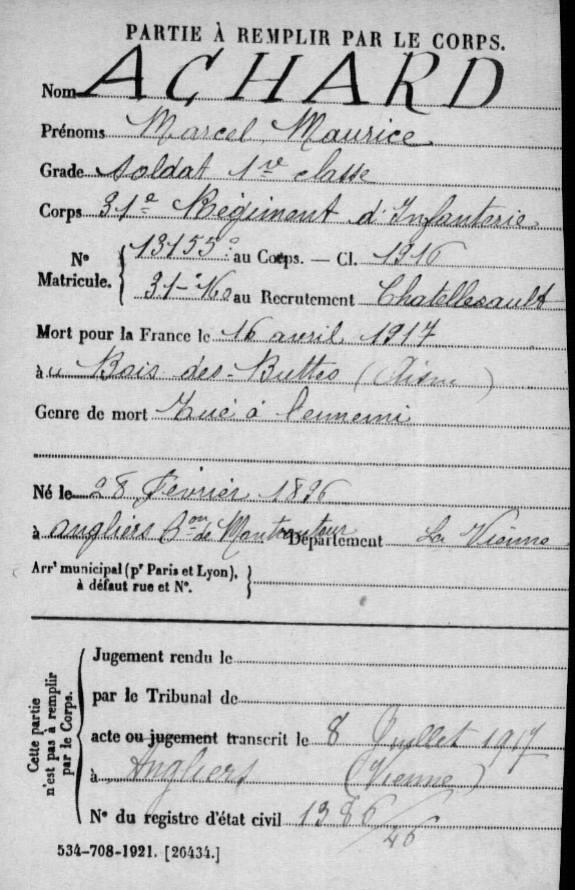 PARTIE À REMPLIR PAR LE CORPS.
Nom ACHARD
Prénoms Marcel Maurice
Grade Soldat 1re classe
Corps 31e Régiment d'Infanterie
N° Matricule. 13155 au Corps. — Cl. 1916
au Recrutement Chatellerault
Mort pour la France le 16 avril 1917
à Bois des Buttes (Aisne)
Genre de mort Tué à l'ennemi
Né le 28 Février 1896
à Angliers Con de Moncontour Département La Vienne
Arrt municipal (pr Paris et Lyon), à défaut rue et N°.
Cette partie n'est pas à remplir par le Corps.
Jugement rendu le
par le Tribunal de
acte ou jugement transcrit le 8 Juillet 1917
à Angliers (Vienne)
N° du registre d'état civil 1386/46
534-708-1921. [26434.]